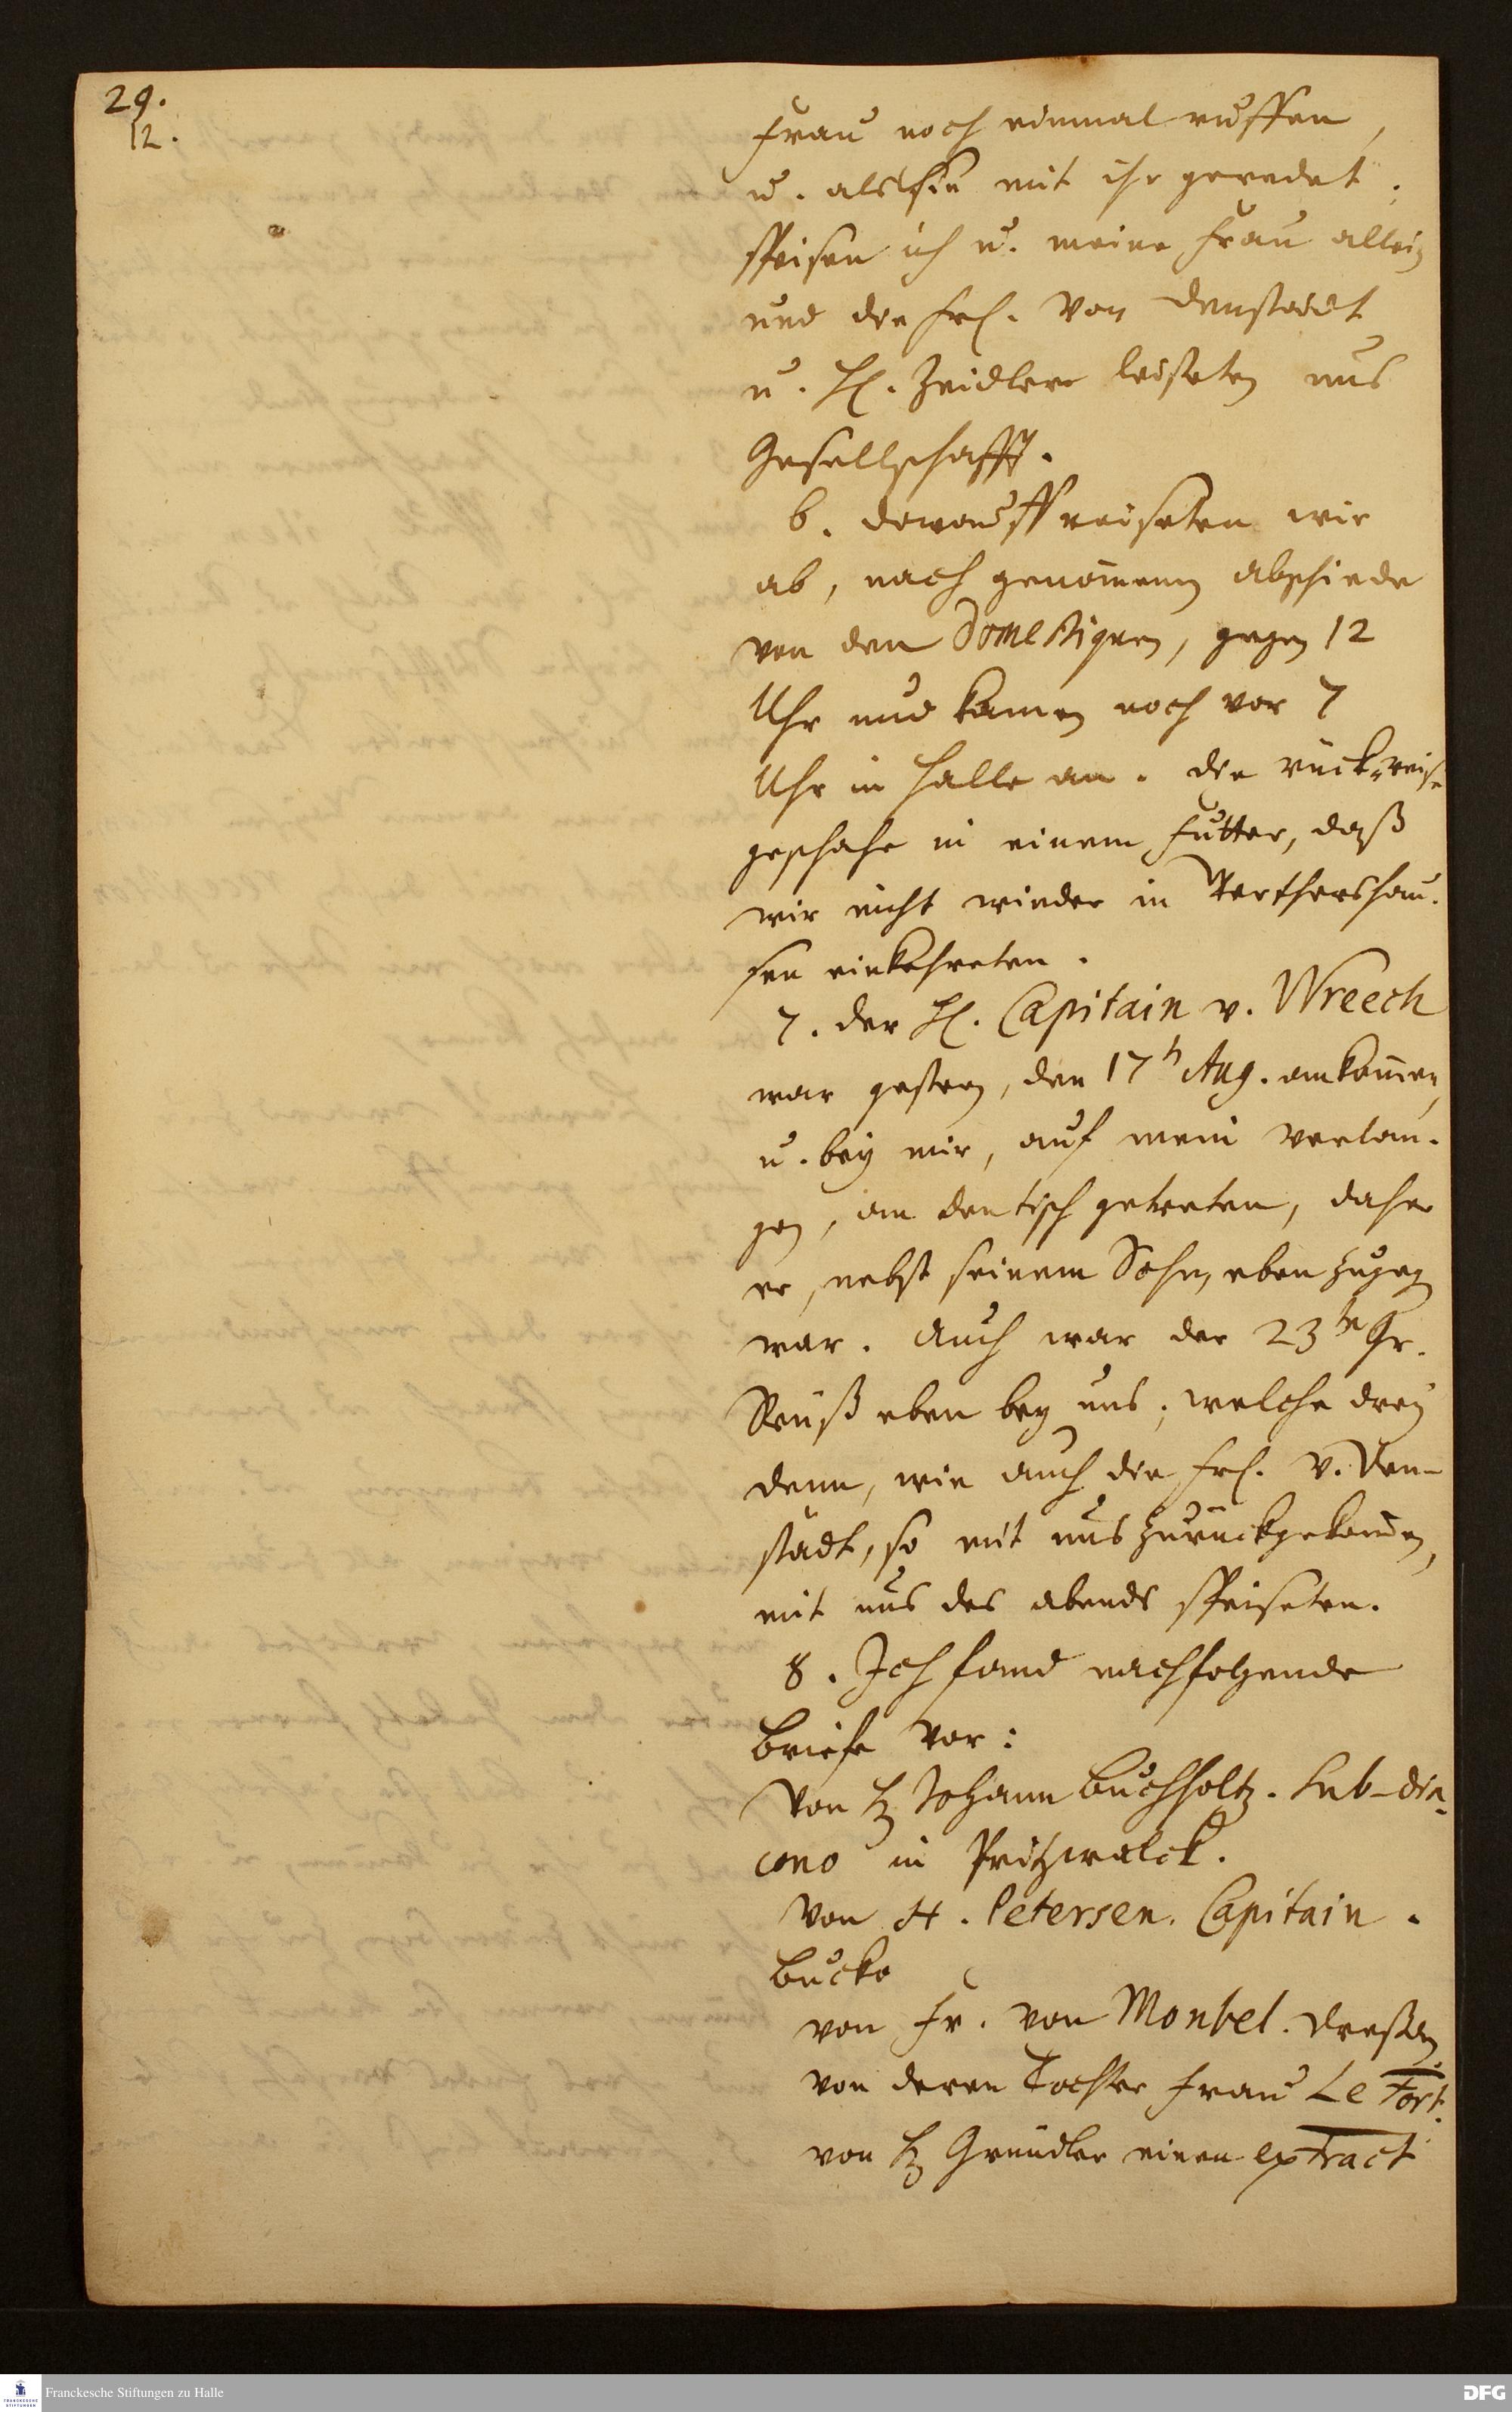 29.
12.
Frau noch einmal ruffen,
u. als sie mit ihr geredet,
speisen ich u. meine Frau allein
und die Frl. von Denstaedt
u. H. Zeidler leisteten uns
Gesellschafft.
6. Darauff reiseten wir
ab, nach genom̄enen abschiede
von den Domestiquen, gegen 12
Uhr und kamen noch vor 7
Uhr in Halle an. Die rück-reise
geschahe in einem Futter, daß
wir nicht wieder in Werthershau-
sen einkehreten.
7. Der H. Capitain v. Wreech
war gestern, den 17t Aug. ankom̄en,
u. bey mir, auf mein verlan-
gen, an den tisch getreten, daher
er, nebst seinem Sohn, eben zugegen
war. Auch war der 23te Gr.
Reuß eben bey uns; welche drey
denn, wie auch die Frl. v. Den-
städt, so mit uns zurückgekom̄en,
mit uns des abends speiseten.
8. Ich fand nachfolgende
briefe vor:
Von H. Johann Buchholtz. Sub-dia-
cono in Pritzwalck.
Von H. Petersen. Capitain.
Bucko
von Fr. von Monbel. Dreßden
von deren Tochter Frau Le Fort.
von H. Gründler einen extract
Franckesche Stiftungen zu Halle
FRANCKESCHE STIFTUNGEN
DFG